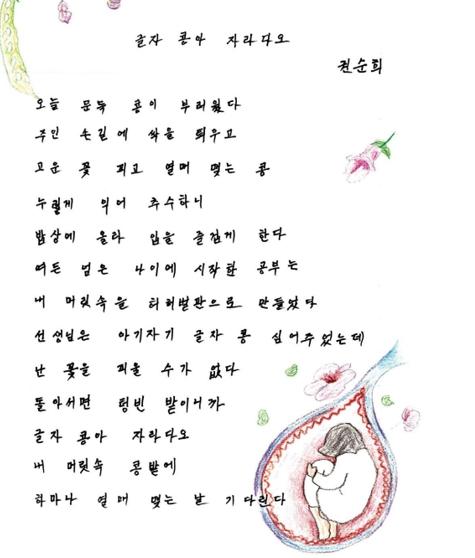 글자 콩아 자라다오
권순희
오늘 문득 콩이 부러웠다
주인 손길에 싹을 틔우고
고운 꽃 피고 열매 맺는 콩
누렇게 익어 추수하니
밥상에 올라 입을 즐겁게 한다
여든 넘은 나이에 시작한 공부는
내 머릿속을 터허벌판으로 만들었다
선생님은 아기자기 글자 콩 심어주었는데
난 꽃을 피울 수가 없다
돌아서면 텅빈 밭이니까
글자 콩아 자라다오
내 머릿속 콩밭에
하마나 열매 맺는 날 기다린다